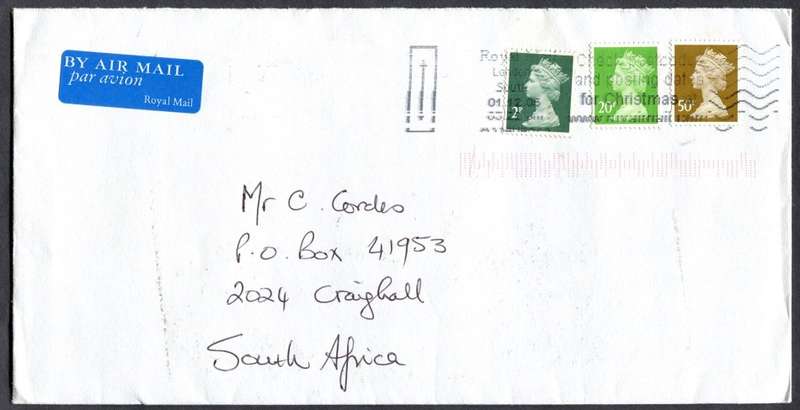 BY AIR MAIL
par avion
Royal Mail
Royal
London
South
01.12.05
Check
and posting dat
for Christmas
2P
20P
50P
Mr C. Cordes
P.O. Box 41953
2024 Craighall
South Africa